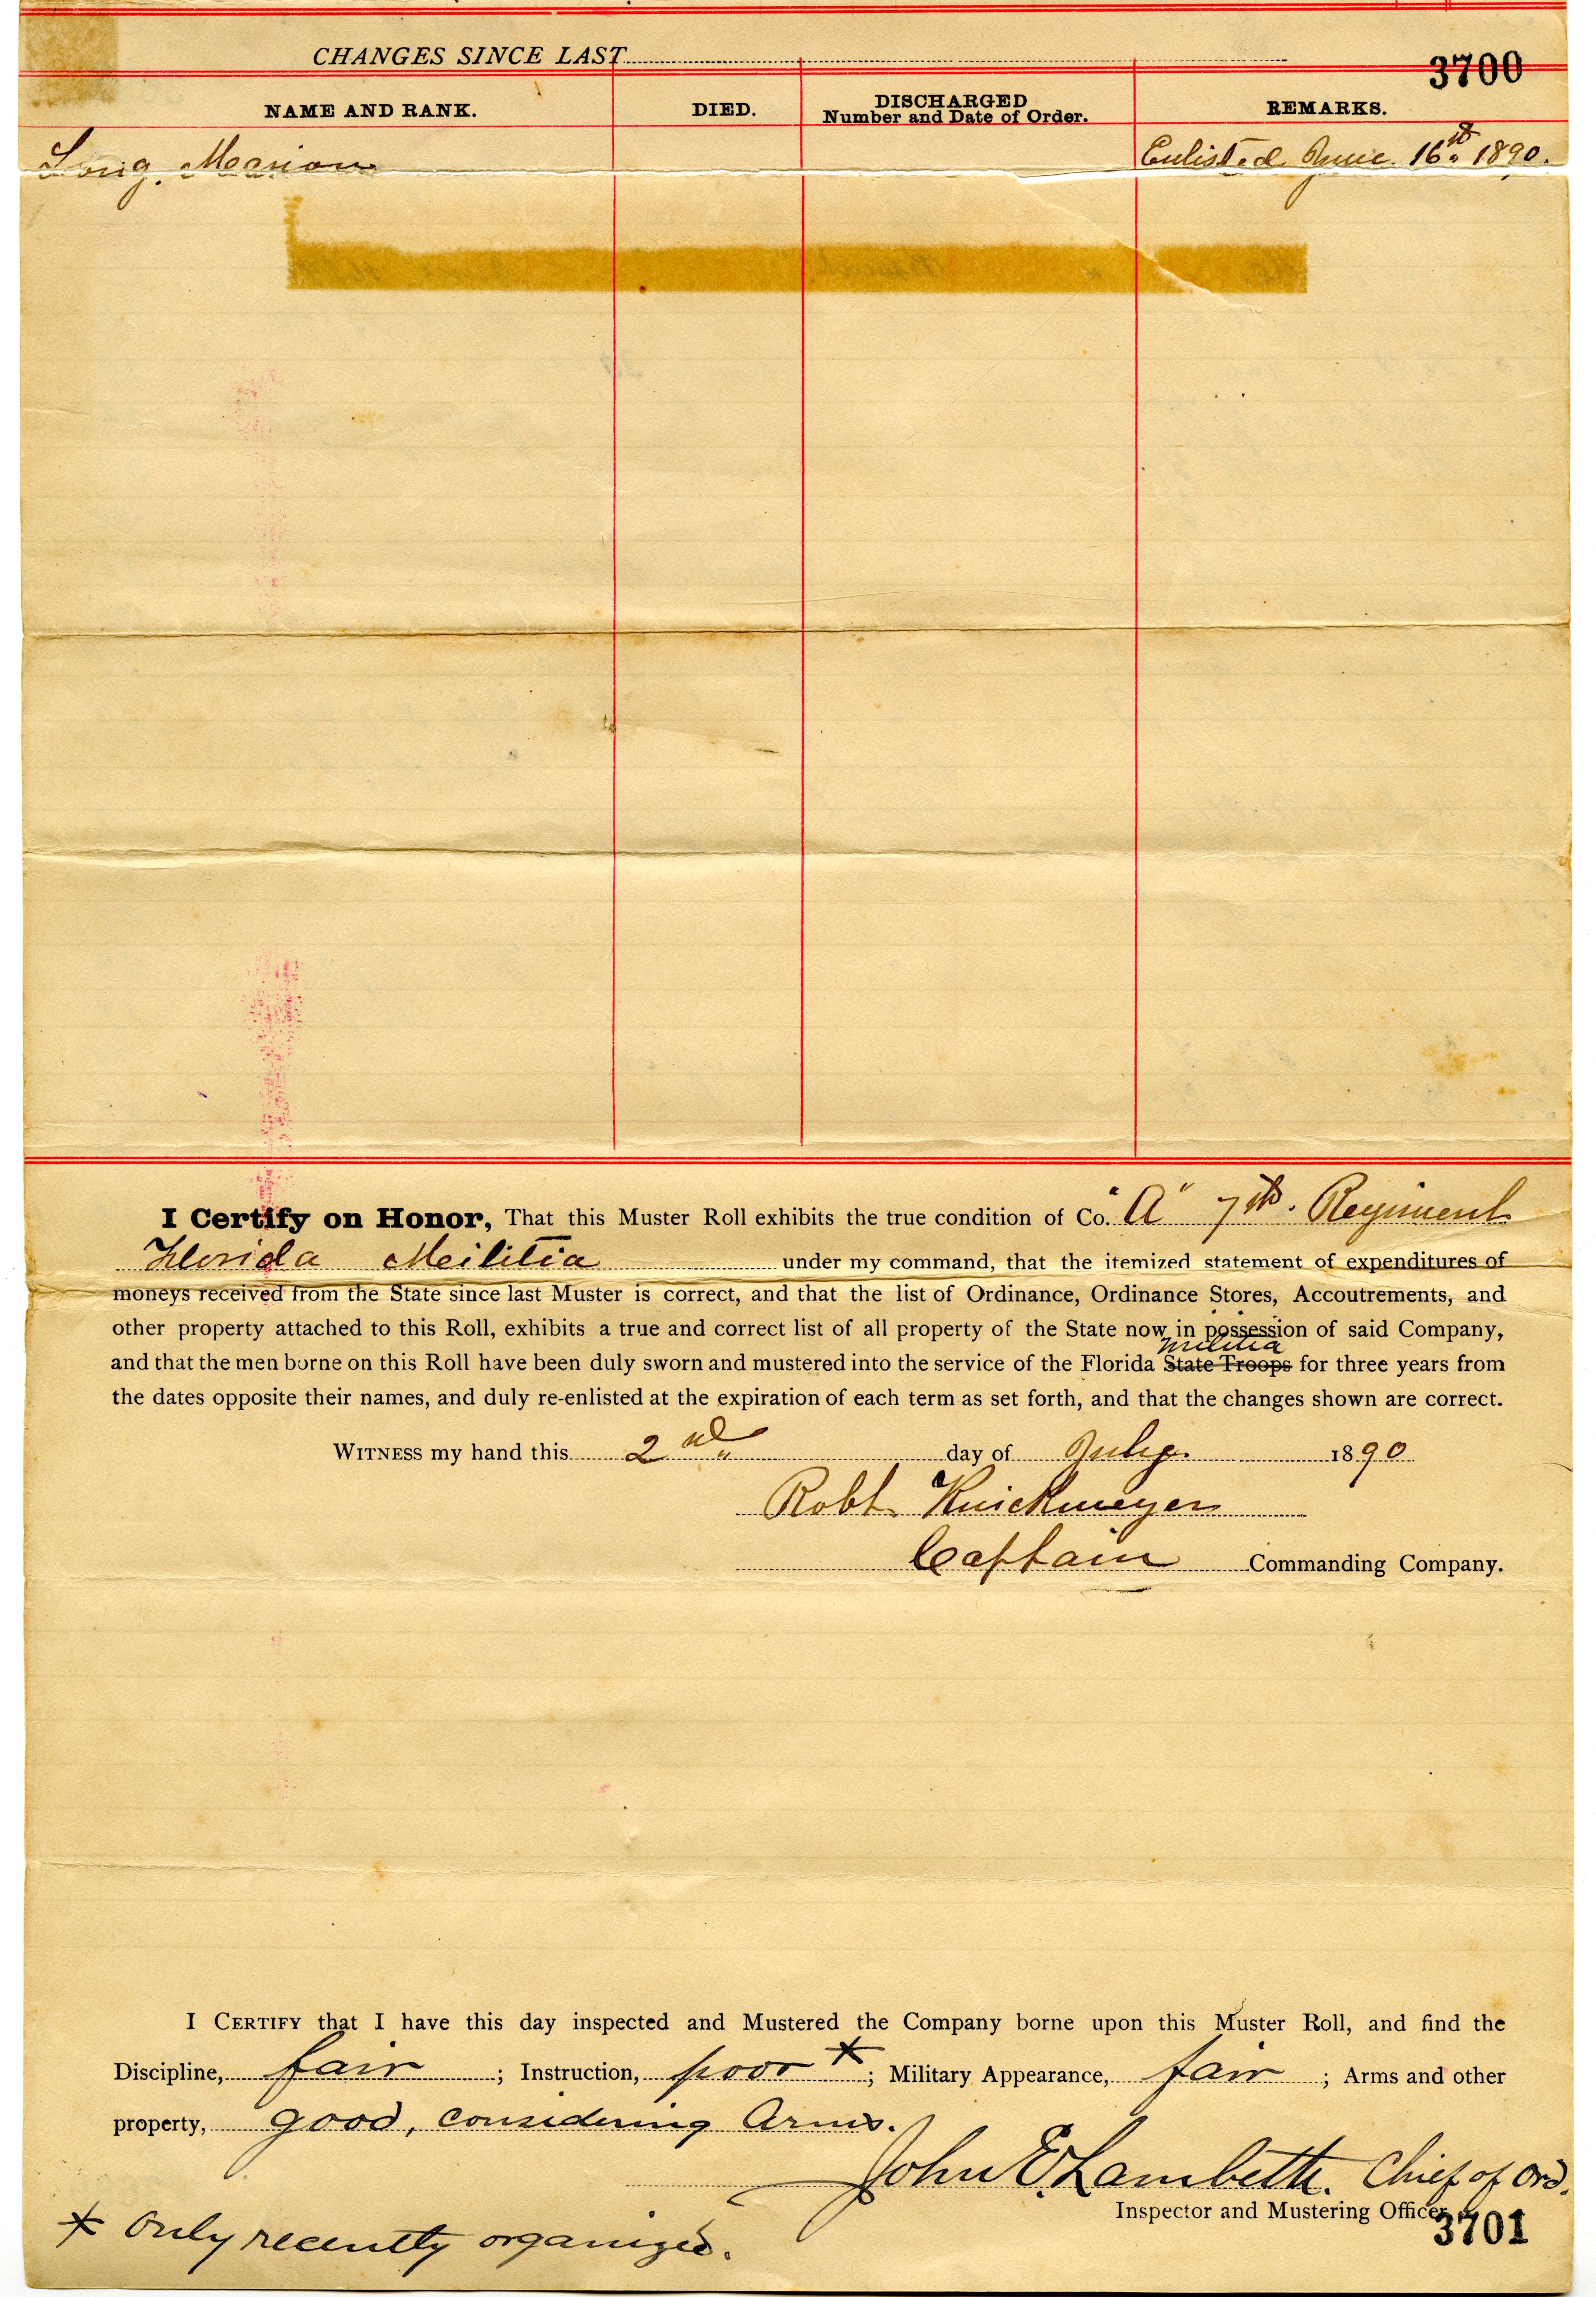 CHANGES SINCE LAST
3700
NAME AND RANK. DIED. DISCHARGED Number and Date of Order. REMARKS.
Long, Marion Enlisted June 16th 1890.
I Certify on Honor, That this Muster Roll exhibits the true condition of Co. "A" 7th. Regiment
Florida Meilitia under my command, that the itemized statement of expenditures of
moneys received from the State since last Muster is correct, and that the list of Ordinance, Ordinance Stores, Accoutrements, and
other property attached to this Roll, exhibits a true and correct list of all property of the State now in possession of said Company,
militia
and that the men borne on this Roll have been duly sworn and mustered into the service of the Florida State Troops for three years from
the dates opposite their names, and duly re-enlisted at the expiration of each term as set forth, and that the changes shown are correct.
WITNESS my hand this 2nd day of July. 1890
Robt. Knickmeyer
Captain Commanding Company.
I CERTIFY that I have this day inspected and Mustered the Company borne upon this Muster Roll, and find the
Discipline, fair ; Instruction, poor * ; Military Appearance, fair ; Arms and other
property, good, considering Arms.
John E. Lambeth. Chief of Ord.
Inspector and Mustering Officer
3701
* Only recently organized.